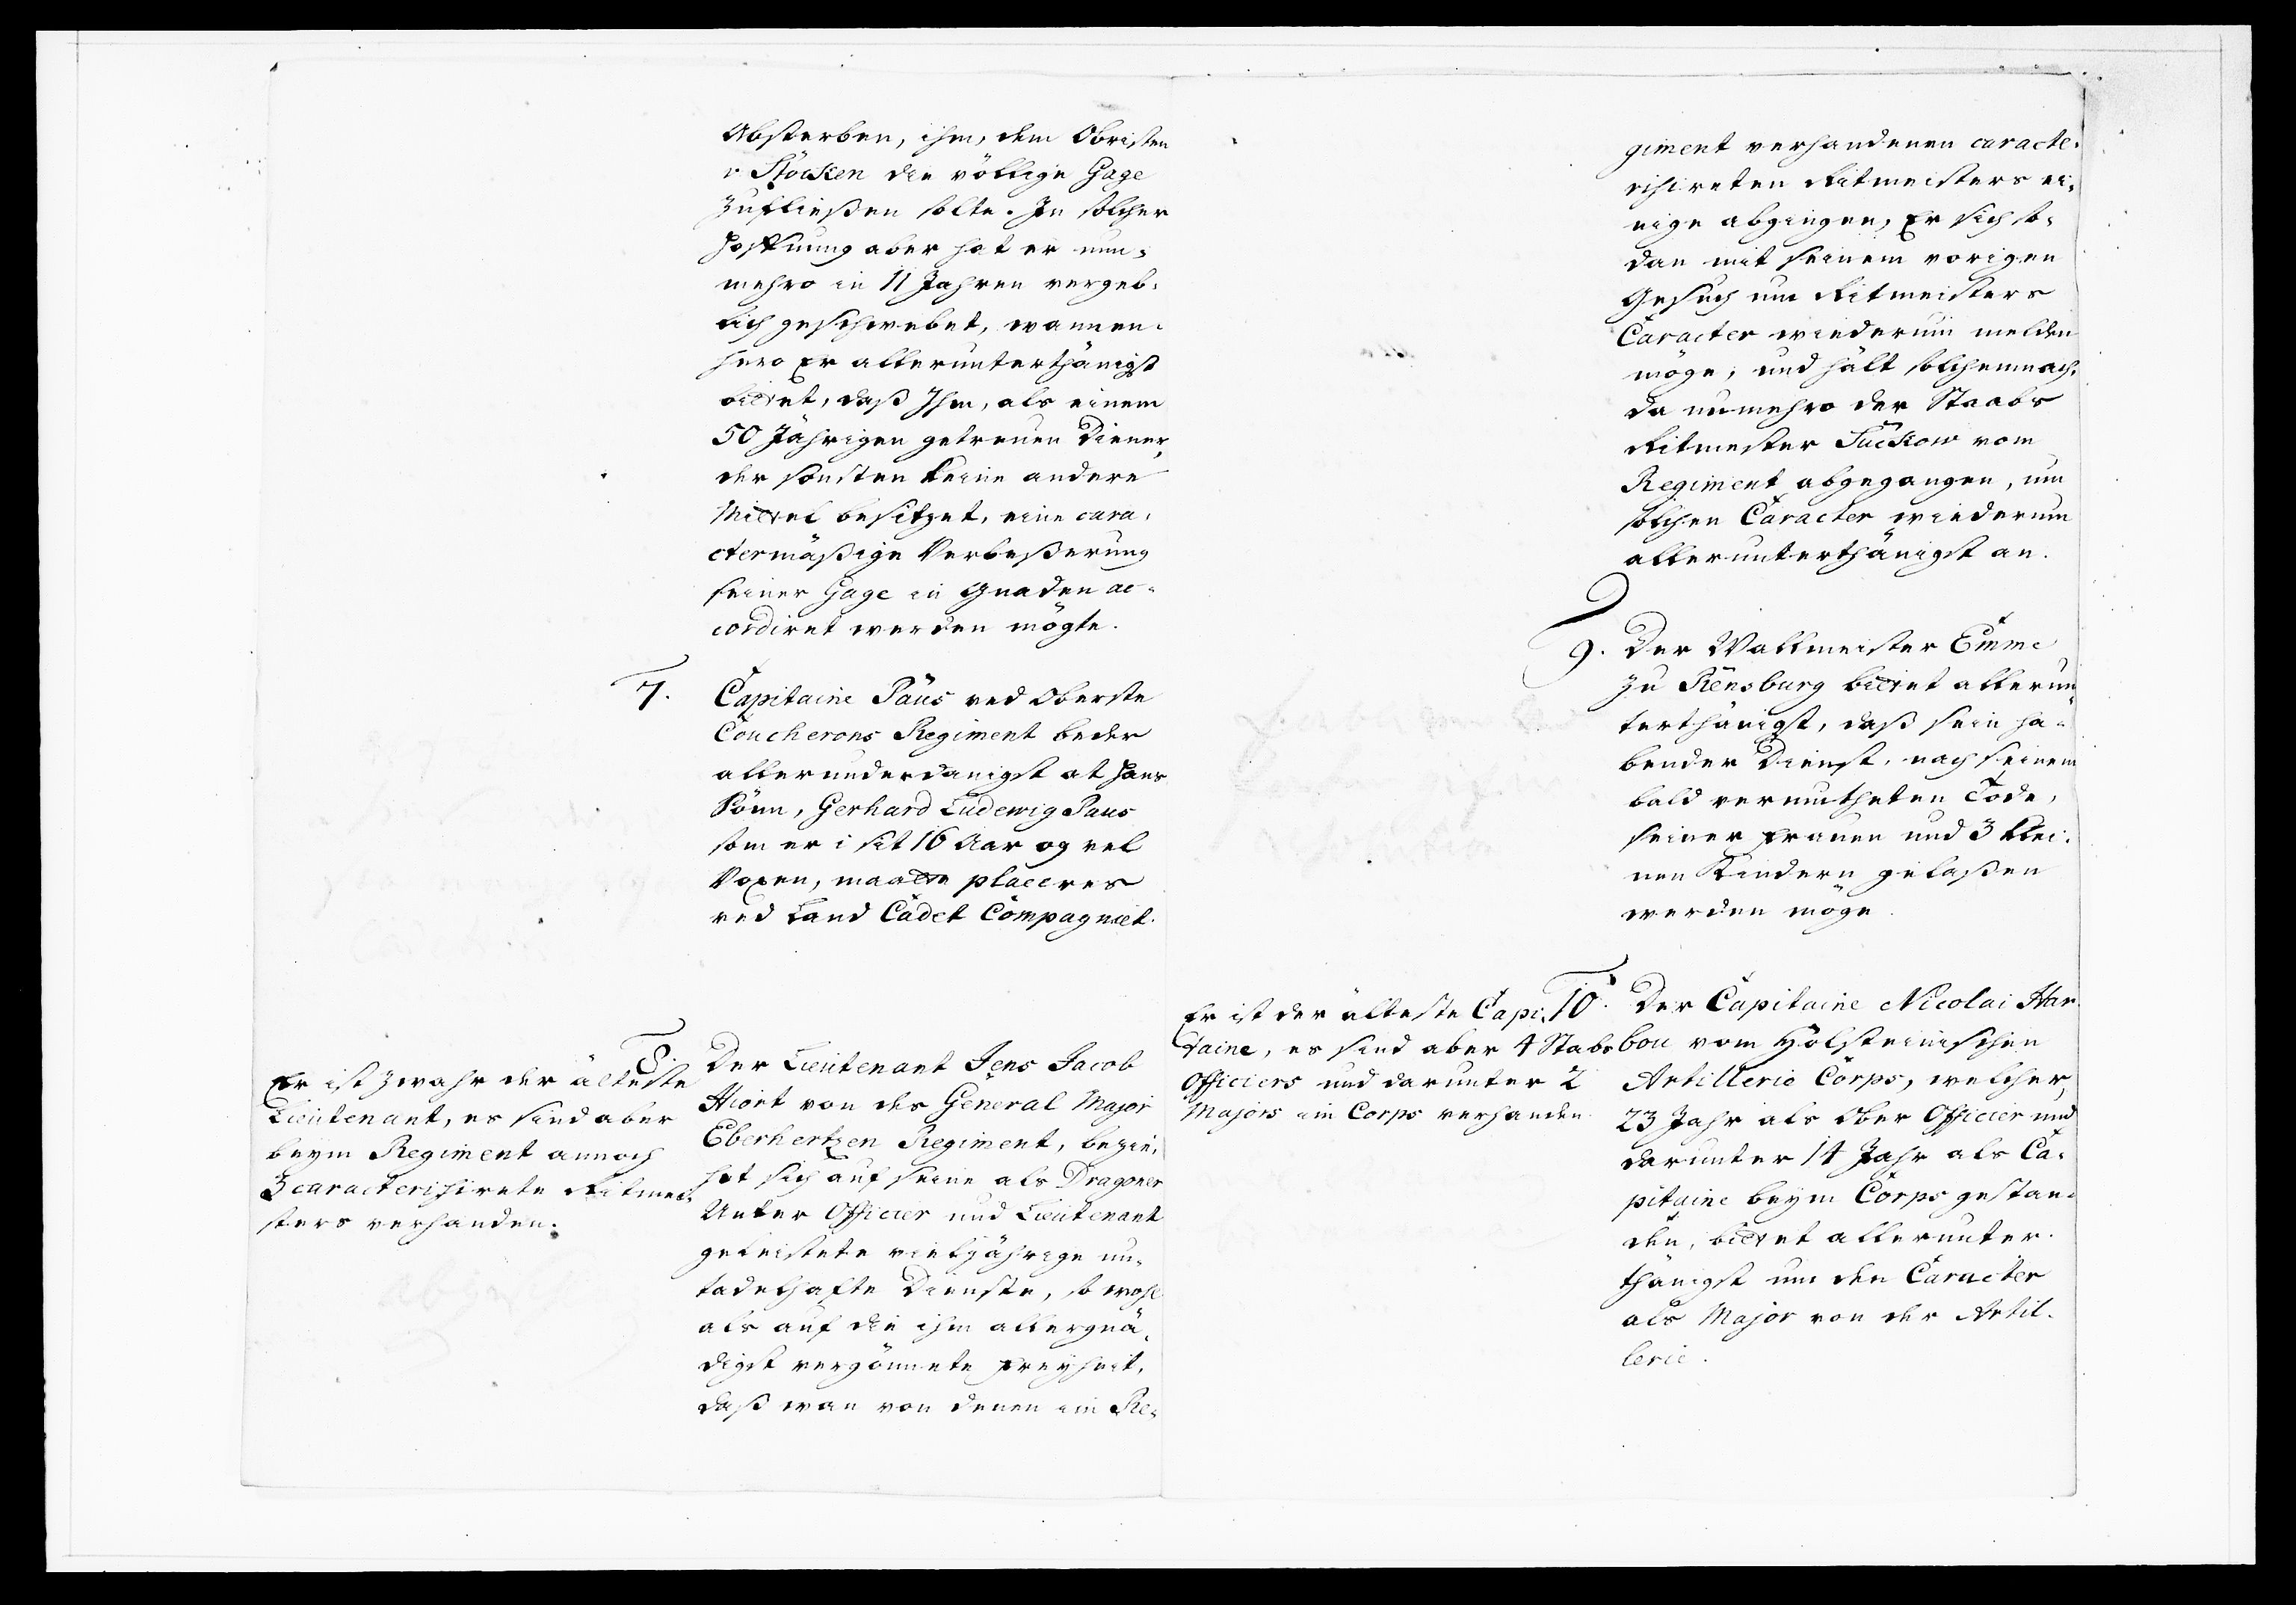 Absterben, ihm, dem Obristen
v Stöcken die völlige Gage
zufließen solte. In solcher
Hoffnung aber hat er nun-
mehro in 11 Jahren vergeb-
lich geschwebet, wannen-
hero Er allerunterthänigst
bittet, daß Ihm, als einem
50 Jährigen getreuen Diener,
der sonsten keine andere
Mittel besitzet, eine cara-
ctermäßige Verbeßerung
seiner Gage in Gnaden ac-
cordiret werden mögte.
7. Capitaine Paus ved Oberste
Coucherons Regiment beder
allerunderdanigst at hans
Sönn, Gerhard Ludewig Paus
som er i sit 16 Aar og vel
Voxen, maatte placeres
ved Land Cadet Compagniet.
Er ist zwahr der älteste
Lieutenant, es sind aber
beym Regiment annoch
3 caracterisirete Ritmei-
sters verhanden.
8. Der Lieutenant Jens Jacob
Hiort von des General Major
Eberhertzen Regiment, bezie-
het sich auf seine als Dragoner
Unter Officier und Lieutenant
geleistete vieljährige un-
tadelhafte Dienste, so wohl
als auf die ihm allergnä-
digst vergönnete Freyheit,
daß wan von denen im Re-
giment verhandenen caracte-
risireten Ritmeisters ei-
nige abgingen, Er sich so-
dan mit seinem vorigen
Gesuch um Ritmeisters
Caracter wiederum melden
möge, und hält solchemnach,
da nunmehro der Staabs
Ritmester Suckow vom
Regiment abgegangen, um
solchen Caracter wiederum
allerunterthänigst an.
9. Der Wallmeister Emme
zu Rensburg bittet allerun-
terthänigst, daß sein ha-
bender Dienst, nach seinem
bald vermutheten Tode,
seiner Frauen und 3 klei-
nen Kindern gelaßen
werden möge.
Er ist der älteste Capi-
taine, es sind aber 4 Stabs
Officiers und darunter 2
Majors im Corps verhanden
10. Der Capitaine Nicolai Har-
bou vom Holsteinischen
Artillerie Corps, welcher
23 Jahr als Ober Officier und
darunter 14 Jahr als Ca-
pitaine beym Corps gestan-
den, bittet allerunter-
thänigst um den Caracter
als Major von der Artil-
lerie.